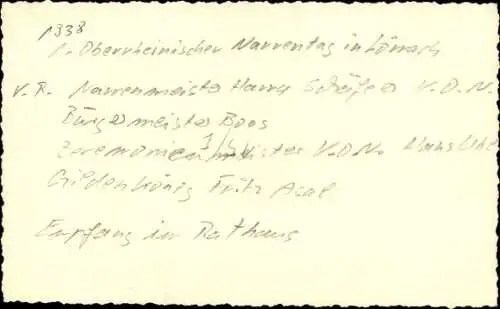 1938
1. Oberrheinischer Narrentag in Lörrach
V. R. Narrenmeister Harry Schäfer V.O.N.
Bürgermeister Boos
Zeremonienmeister V.O.N. Hans
Gildenkönig Fritz
Empfang im Rathaus